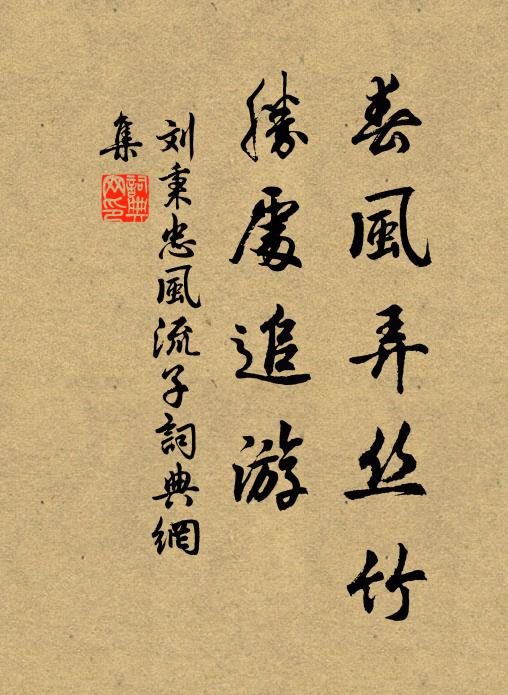 春風弄丝竹
勝處追游
刘秉忠風流子詞典網
集
詞典網印